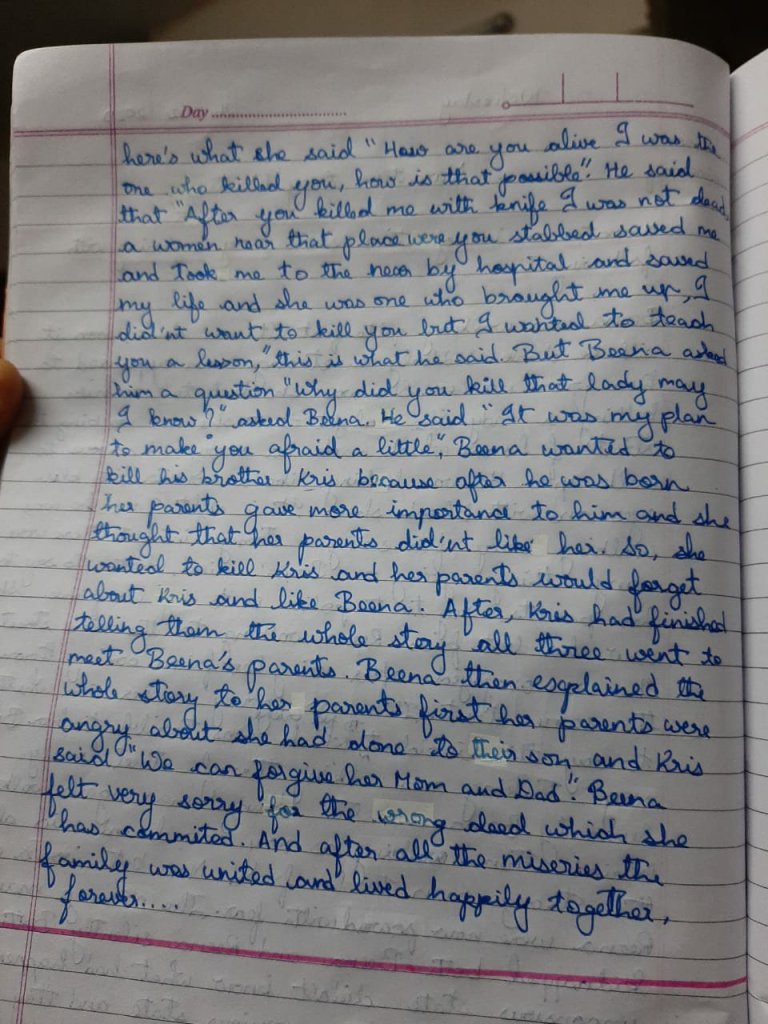 Day
here's what she said "How are you alive I was the
one who killed you, how is that possible". He said
that "After you killed me with knife I was not dead,
a women near that place were you stabbed saved me
and took me to the near by hospital and saved
my life and she was one who brought me up, I
did'nt want to kill you but I wanted to teach
you a lesson," this is what he said. But Beena asked
him a question "Why did you kill that lady may
I know?" asked Beena. He said "It was my plan
to make you afraid a little", Beena wanted to
kill his brother Kris because after he was born
her parents gave more importance to him and she
thought that her parents did'nt like her. So, she
wanted to kill Kris and her parents would forget
about Kris and like Beena. After, Kris had finished
telling them the whole story all three went to
meet Beena's parents. Beena then esqplained the
whole story to her parents first her parents were
angry about she had done to their son and Kris
said "We can forgive her Mom and Dad". Beena
felt very sorry for the wrong deed which she
has commited. And after all the miseries the
family was united and lived happily together,
forever....